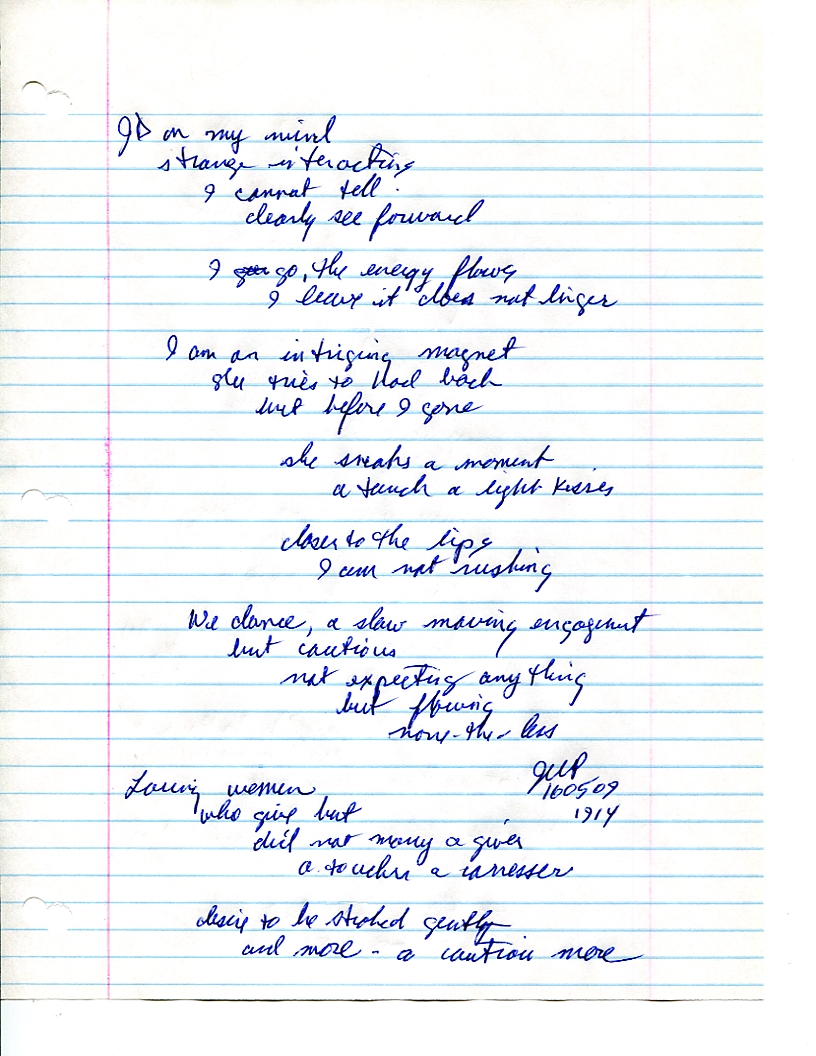 JD on my mind
strange interacting
I cannot tell
clearly see forward
I go, the energy flows
I leave it does not linger
I am an intriging magnet
she tries to hod back
but before I gone
she sneaks a moment
a touch a light kisses
closer to the lips
I am not rushing
We dance, a slow moving engagement
but cautious
not expecting anything
but flowing
none-the-less
160509
1914
Loving women
who give but
did not marry a giver
a toucher a carresser
desire to be stroked gently
and more - a caution more